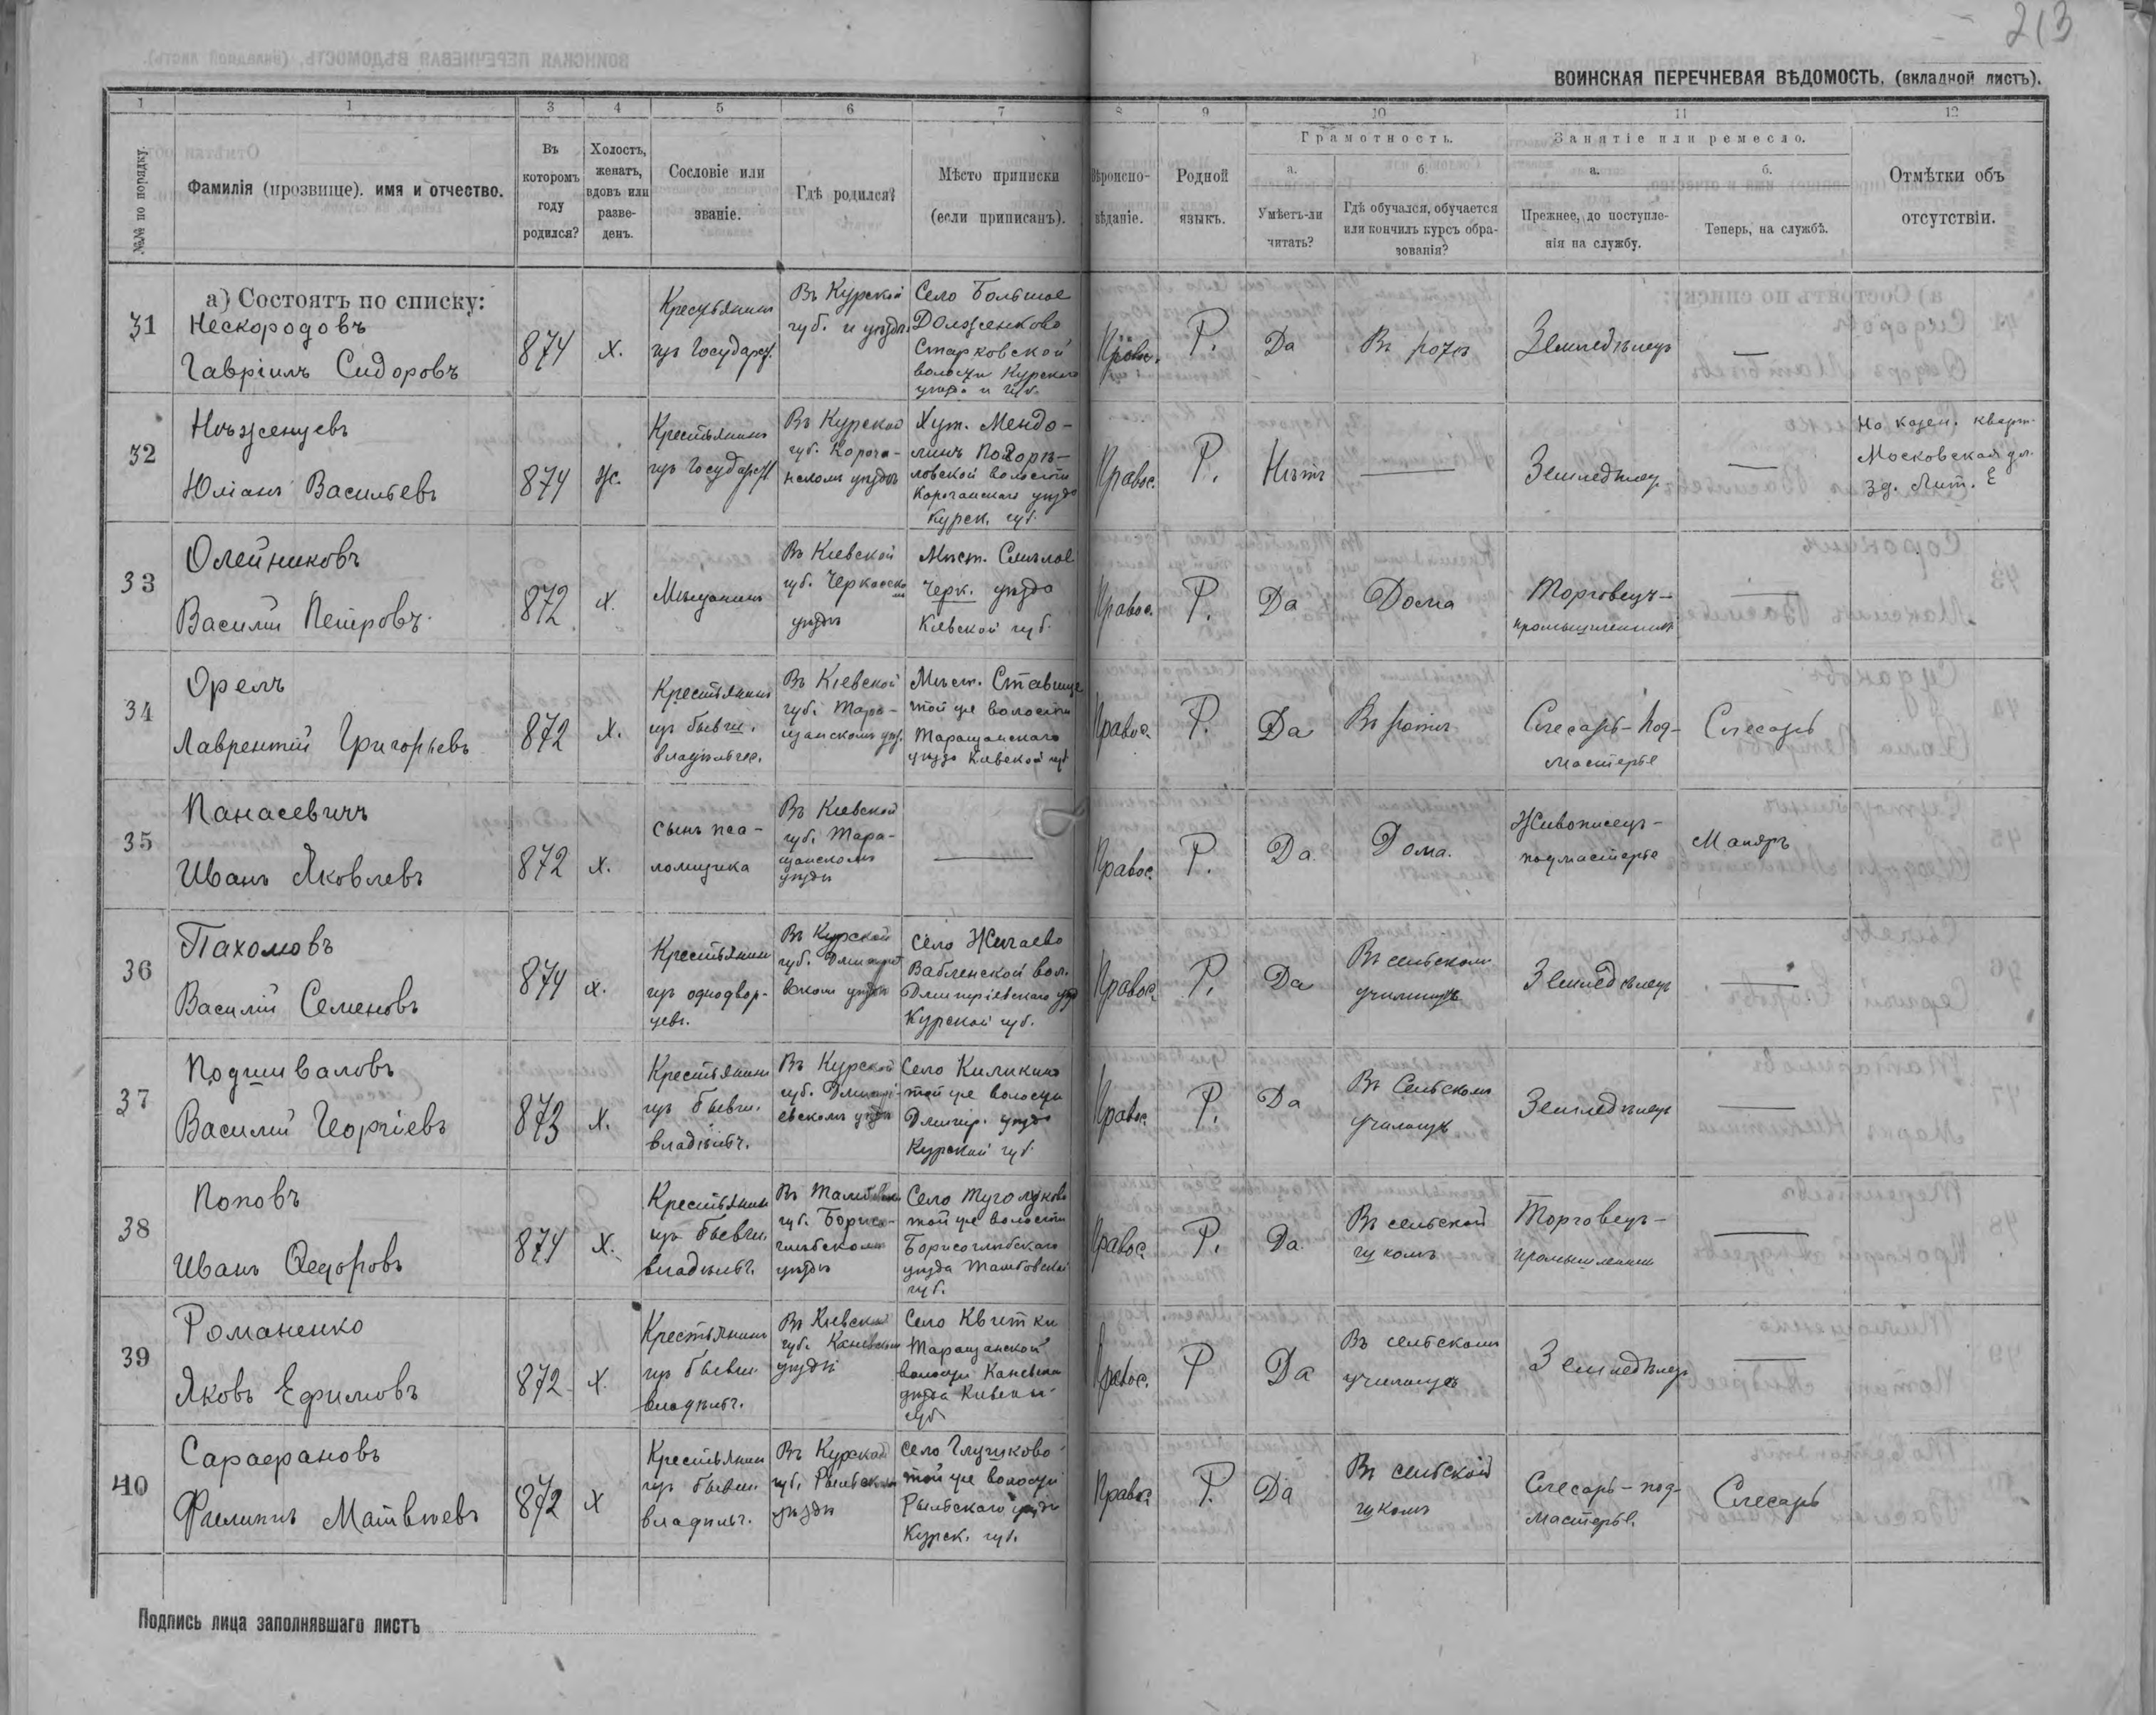 213
ВОИНСКАЯ ПЕРЕЧНЕВАЯ ВѢДОМОСТЬ. (вкладной листъ).
1 1 3 4 5 6 7 8 9 10 11 12
№№ по порядку.
Фамилія (прозвище). имя и отчество.
Въ которомъ году родился?
Холостъ, женатъ, вдовъ или разведенъ.
Сословіе или званіе.
Гдѣ родился?
Мѣсто приписки (если приписанъ).
Вѣроисповѣданіе.
Родной языкъ.
Грамотность.
а.
Умѣетъ-ли читать?
б.
Гдѣ обучался, обучается или кончилъ курсъ образованія?
Занятіе или ремесло.
а.
Прежнее, до поступленія на службу.
б.
Теперь, на службѣ.
Отмѣтки объ отсутствіи.
а) Состоятъ по списку:
31
Нескородовъ
Гавріилъ Сидоровъ
874
х.
Крестьянинъ
изъ Государ.
Въ Курской
губ. и уѣздѣ
Село Большое
Долженково
Старковской
волости Курскаго
уѣзда и губ.
Р.
Да
Въ ротѣ
Земледѣлецъ
—
32
Нѣженцевъ
Юліанъ Васильевъ
874
ж.
Крестьянинъ
изъ Государ.
Въ Курской
губ. Короча-
нскомъ уѣздѣ
Хут. Мендо-
линъ
ловской волости
Корочанскаго уѣзда
Курск. губ.
Правос.
Р.
Нѣтъ
—
Земледѣлец
—
На казен. кварт.
Московская ул.
зд. Лит. Е
33
Олейниковъ
Василій Петровъ
872
х.
Мѣщанинъ
Въ Кіевской
губ. Черкасском
уѣздѣ
Мѣст. Смѣлое
Черк. уѣзда
Кіевской губ.
Правос.
Р.
Да
Дома
Торговецъ-
промышленникъ
—
34
Орелъ
Лаврентій Григорьевъ
872
х.
Крестьянинъ
изъ бывш.
владѣльчес.
Въ Кіевской
губ. Тара-
щанскомъ уѣз.
Мѣст. Ставище
той же волости
Таращанскаго
уѣзда Кіевской губ
Правос.
Р.
Да
Въ ротѣ
Слесарь-под-
мастерье
Слесарь
35
Панасевичъ
Иванъ Яковлевъ
872
х.
Сынъ пса-
ломщика
Въ Кіевской
губ. Тара-
щанскомъ
уѣздѣ
—
Правос.
Р.
Да.
Дома.
Живописецъ-
подмастерье
Маляръ
36
Пахомовъ
Василій Семеновъ
874
х.
Крестьянин
изъ однодвор-
цевъ.
Въ Курской
губ. Дмитріе
вском уѣздѣ
Село Жигаево
Вабленской вол.
Дмитріевскаго уѣз
Курской губ.
Правос.
Р.
Да
Въ сельском
училищѣ
Земледѣлецъ
—
37
Подшиваловъ
Василій Георгіевъ
873
х.
Крестьянинъ
изъ бывш.
владѣльч.
Въ Курской
губ. Дмитрі-
евскомъ уѣздѣ
Село Киликино
той же волости
Дмитр. уѣзда
Курской губ.
Правос.
Р.
Да
Въ Сельскомъ
училищѣ
Земледѣлецъ
—
38
Поповъ
Иванъ Ѳедоровъ
874
х.
Крестьянин
изъ бывш.
владѣльч.
Въ Тамбовск
губ. Борисо-
глѣбскомъ
уѣздѣ
Село Туголуково
той же волости
Борисоглѣбскаго
уѣзда Тамбовской
губ.
Правос.
Р.
Да
Въ сельской
школѣ
Торговецъ-
промышленник
—
39
Романенко
Яковъ Ефимовъ
872
х.
Крестьянинъ
изъ бывш.
владѣльч.
Въ Кіевской
губ. Каневском
уѣздѣ
Село Квитки
Таращанской
волости Каневска
уѣзда Кіевской
губ
Правос.
Р
Да
Въ сельскомъ
училищѣ
Земледѣлецъ
—
40
Сарафановъ
Филиппъ Матвѣевъ
872
х
Крестьянин
изъ бывш.
владѣльч.
Въ Курской
губ. Рыльском
уѣздѣ
Село Глушково
той же волости
Рыльскаго уѣзда
Курск. губ.
Правос.
Р.
Да
Въ сельской
школѣ
Слесарь-под-
мастерье.
Слесарь
Подпись лица заполнявшаго листъ